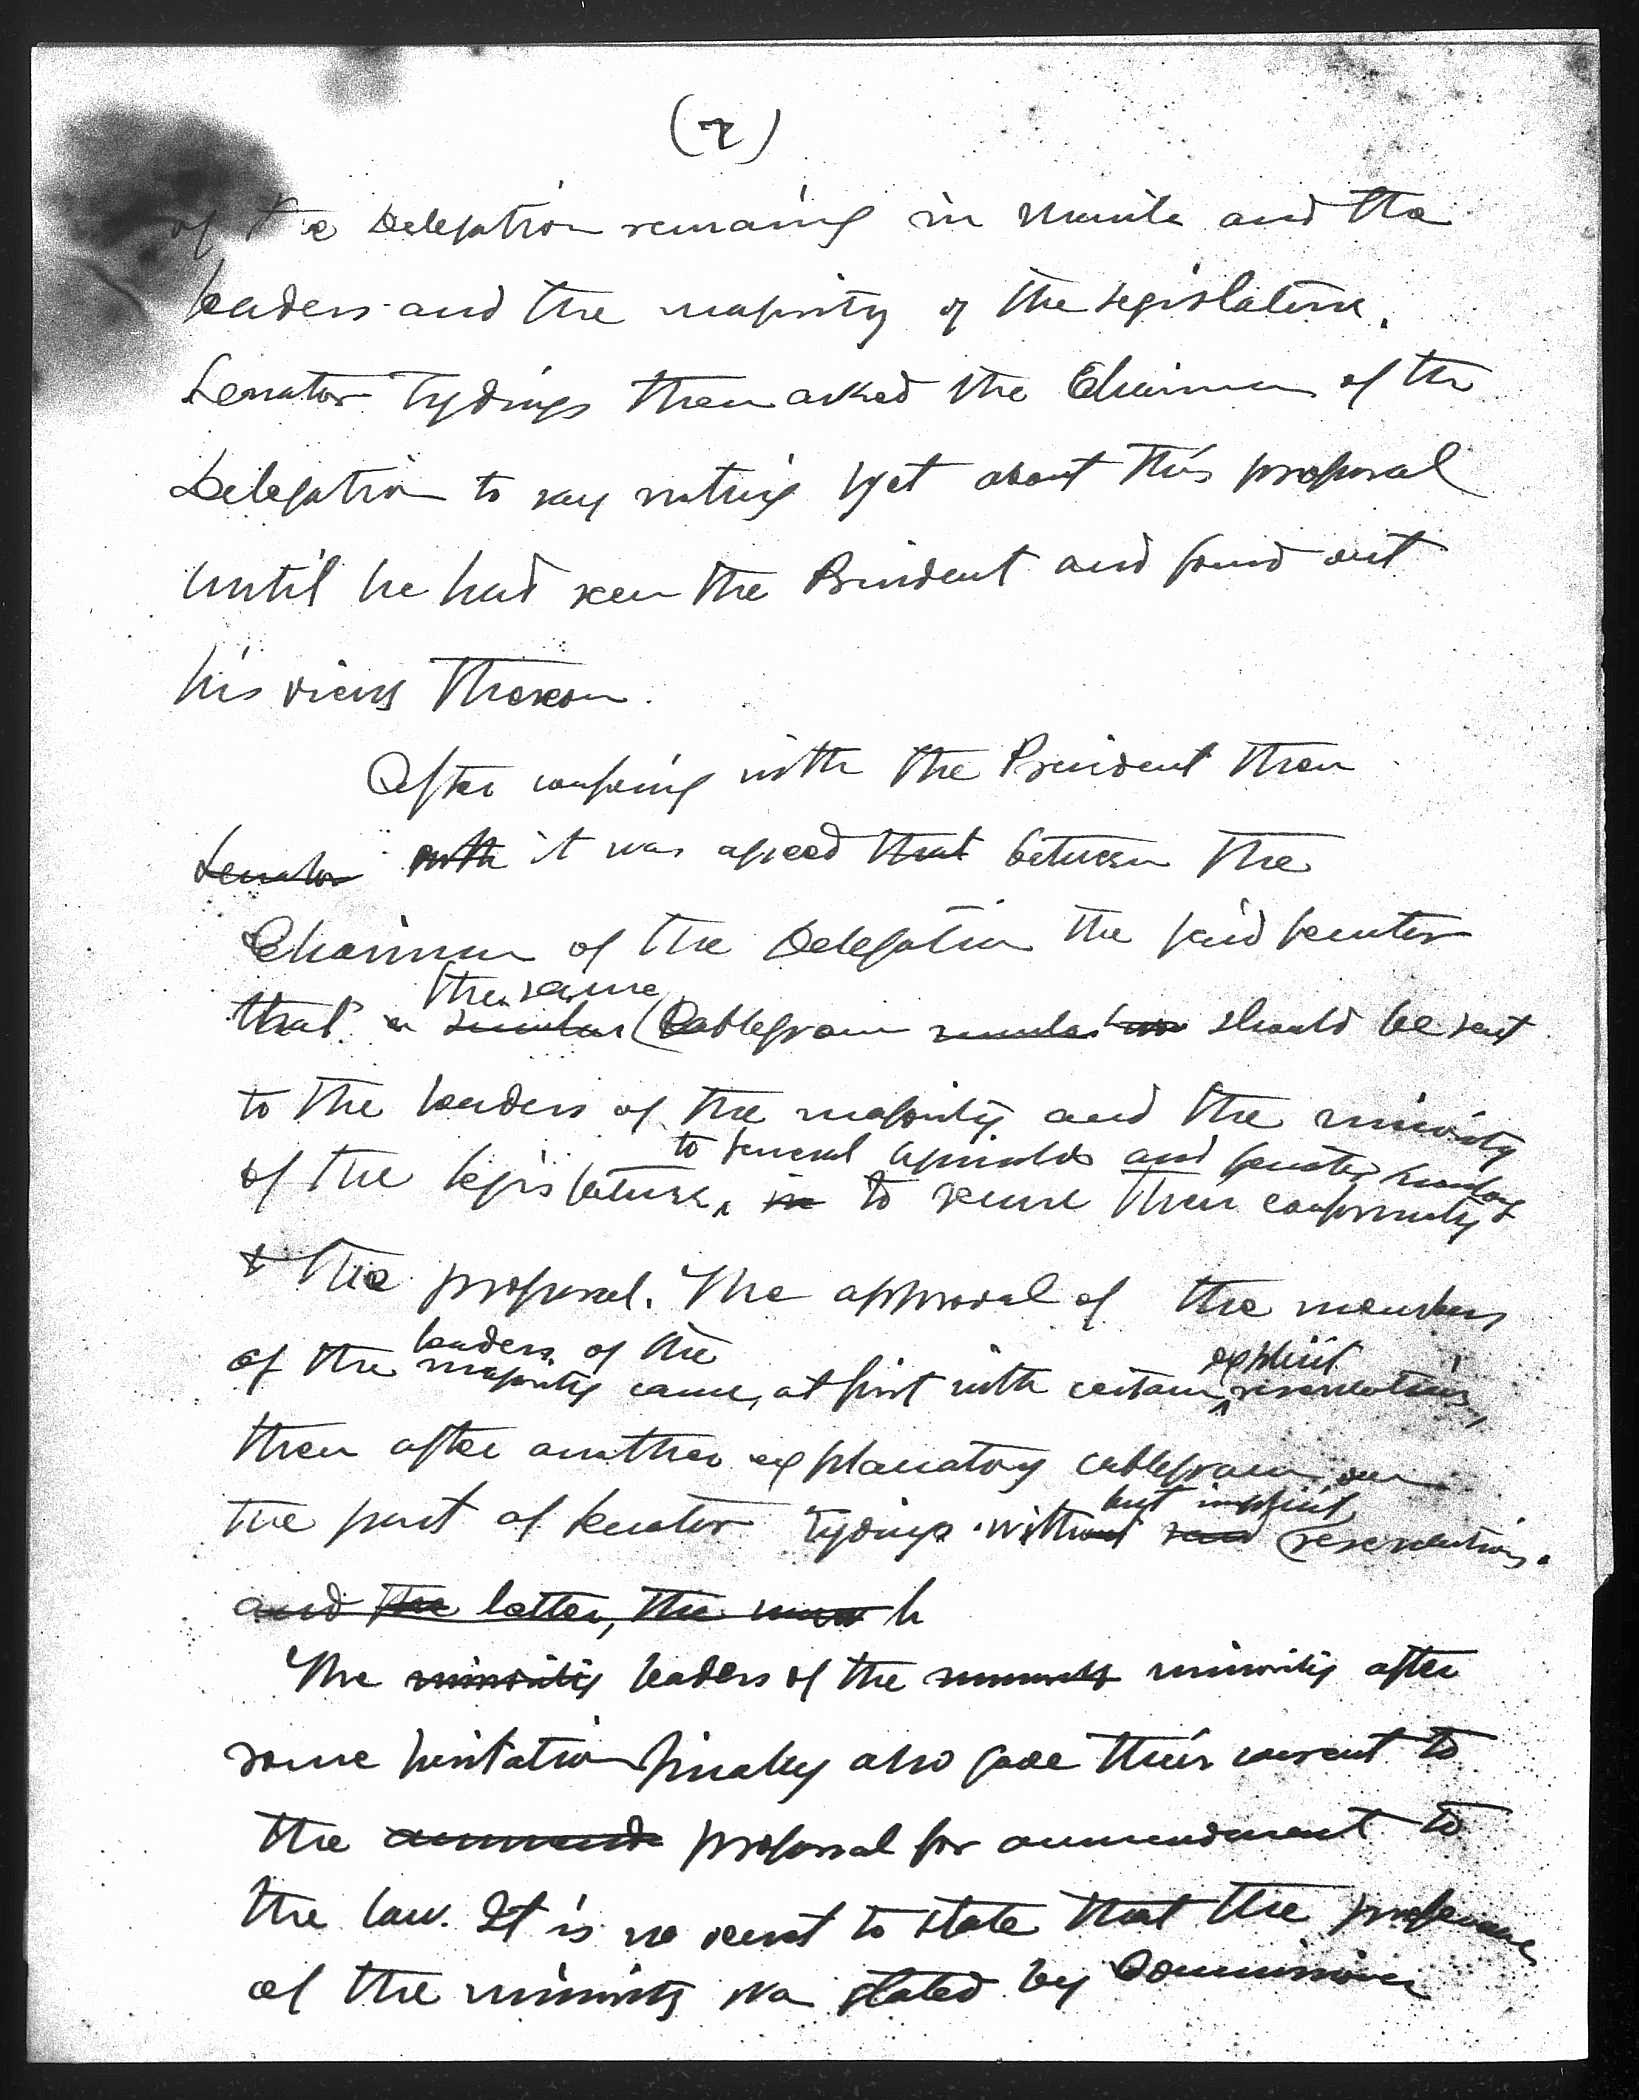 (2)
of the Delegation remaining in Manila and the
leaders and the majority of the Legislature.
Senator Tydings then asked the Chairman of the
Delegation to say nothing yet about this proposal
until he had seen the President and found out
his views thereon.
After conferring with the President then
Senator with it was agreed that between the
Chairman of the Delegation the said Senator
the same
that a similar Cablegram should be sent
to the leaders of the majority and the minority
to General Aguinaldo and Senator Sumulong
of the legislature, in to secure their conformity
to the proposal. The approval of the members
leaders of the explicit
of the majority came, at first with certain reservations,
then after another explanatory cablegram on
but implicit
the part of Senator Tydings without said reservations.
and the latter, the h
The minority leaders of the minority after
some hesitation finally also gave their consent to
the ammend proposal for ammendment to
the law. It is no secret to state that the preference
of the minority was stated by Commissioner